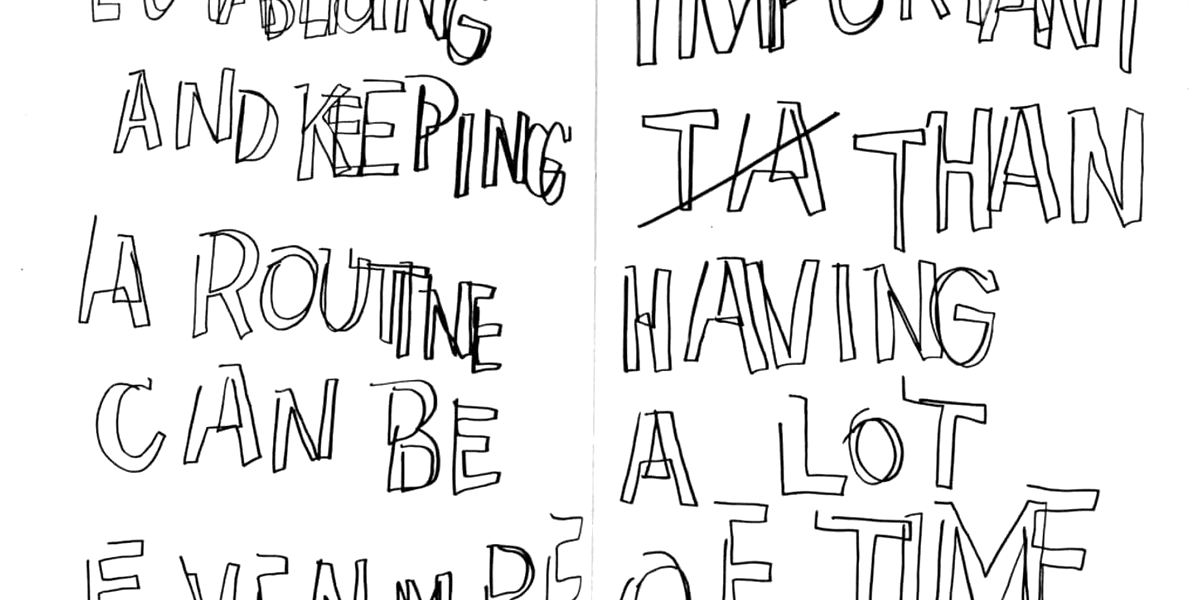 AND KEEPING
A ROUTINE
CAN BE
EVEN MORE
IMPORTANT
TA THAN
HAVING
A LOT
OF TIME